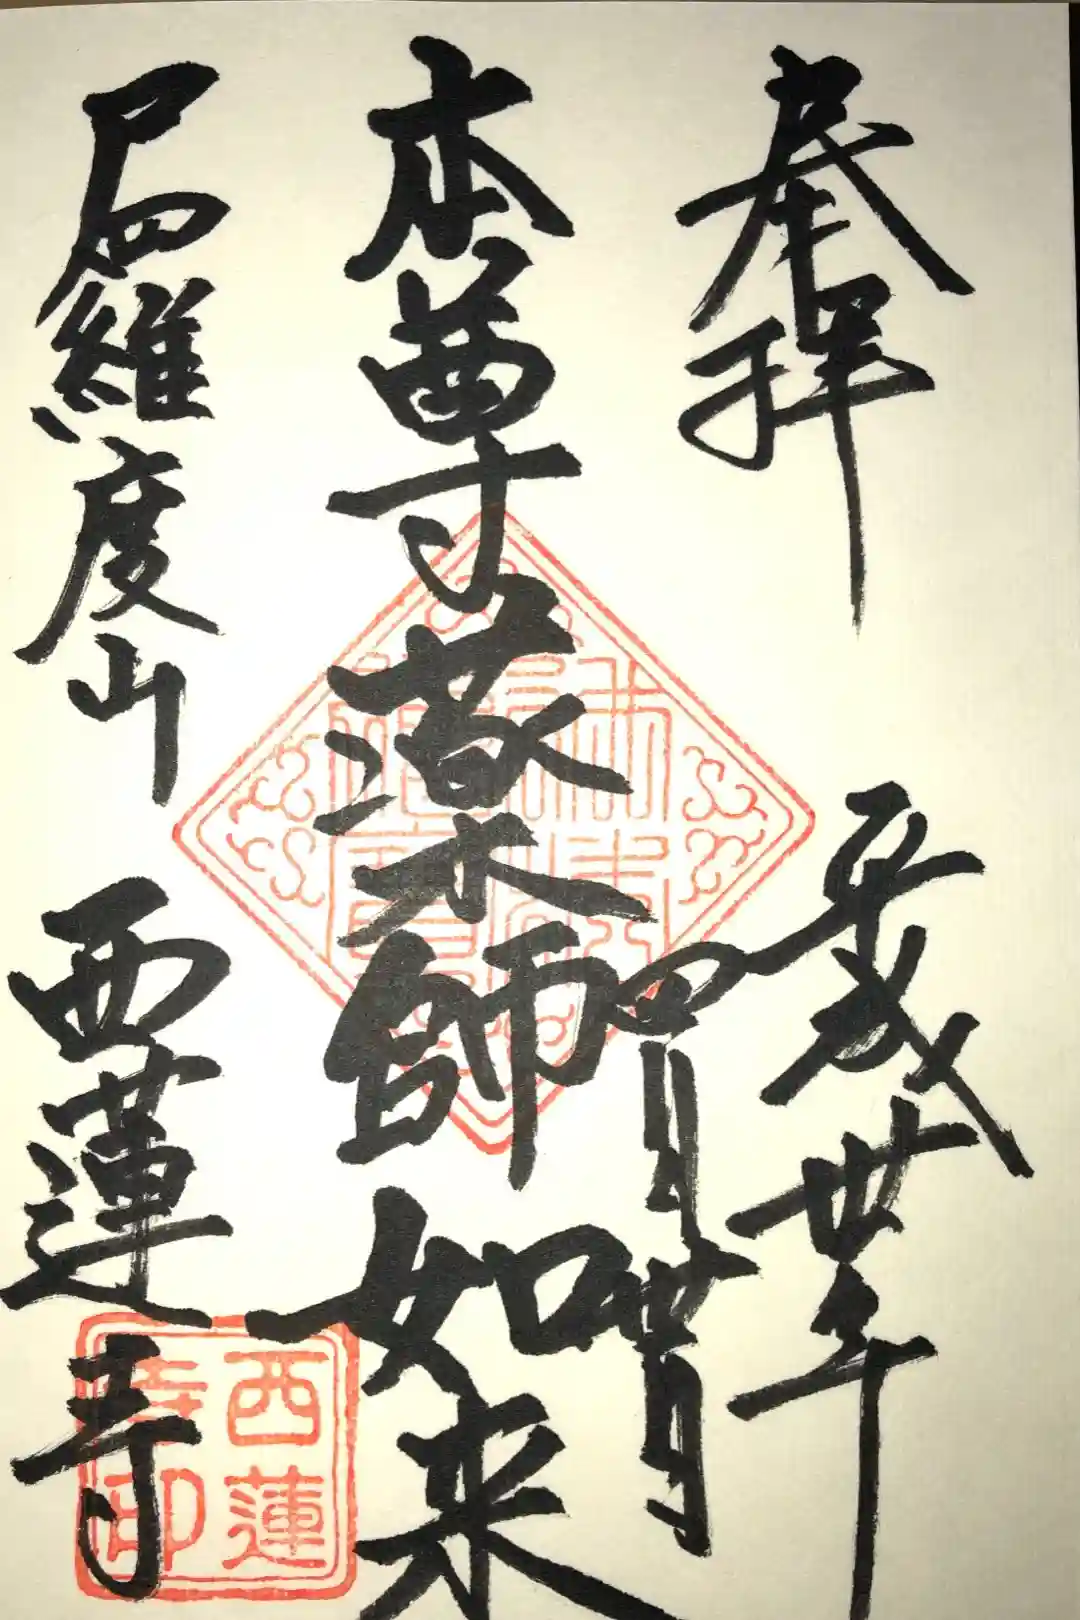 奉拝
平成卅年
四月卅日
本尊薬師如来
尸羅度山
西蓮寺
西蓮
寺印